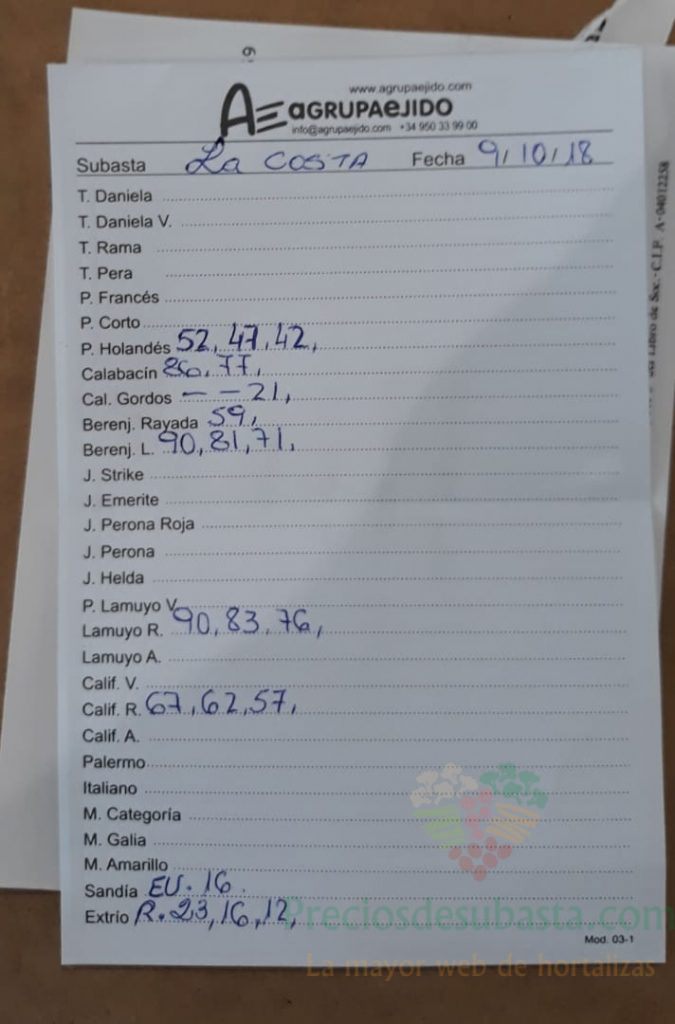 www.agrupaejido.com
AGRUPAEJIDO
info@agrupaejido.com +34 950 33 99 00
Subasta La COSTA Fecha 9/10/18
T. Daniela
T. Daniela V.
T. Rama
T. Pera
P. Francés
P. Corto
P. Holandés 52, 47, 42,
Calabacín 86, 77,
Cal. Gordos - - 21,
Berenj. Rayada 59,
Berenj. L. 90, 81, 71,
J. Strike
J. Emerite
J. Perona Roja
J. Perona
J. Helda
P. Lamuyo V.
Lamuyo R. 90, 83, 76,
Lamuyo A.
Calif. V.
Calif. R. 67, 62, 57,
Calif. A.
Palermo
Italiano
M. Categoría
M. Galia
M. Amarillo
Sandía EU. 16.
Extrio R. 23, 16, 12,
Mod. 03-1
Preciosdesubasta.com
La mayor web de hortalizas
Libro de Soc. - C.I.F. A-04012258